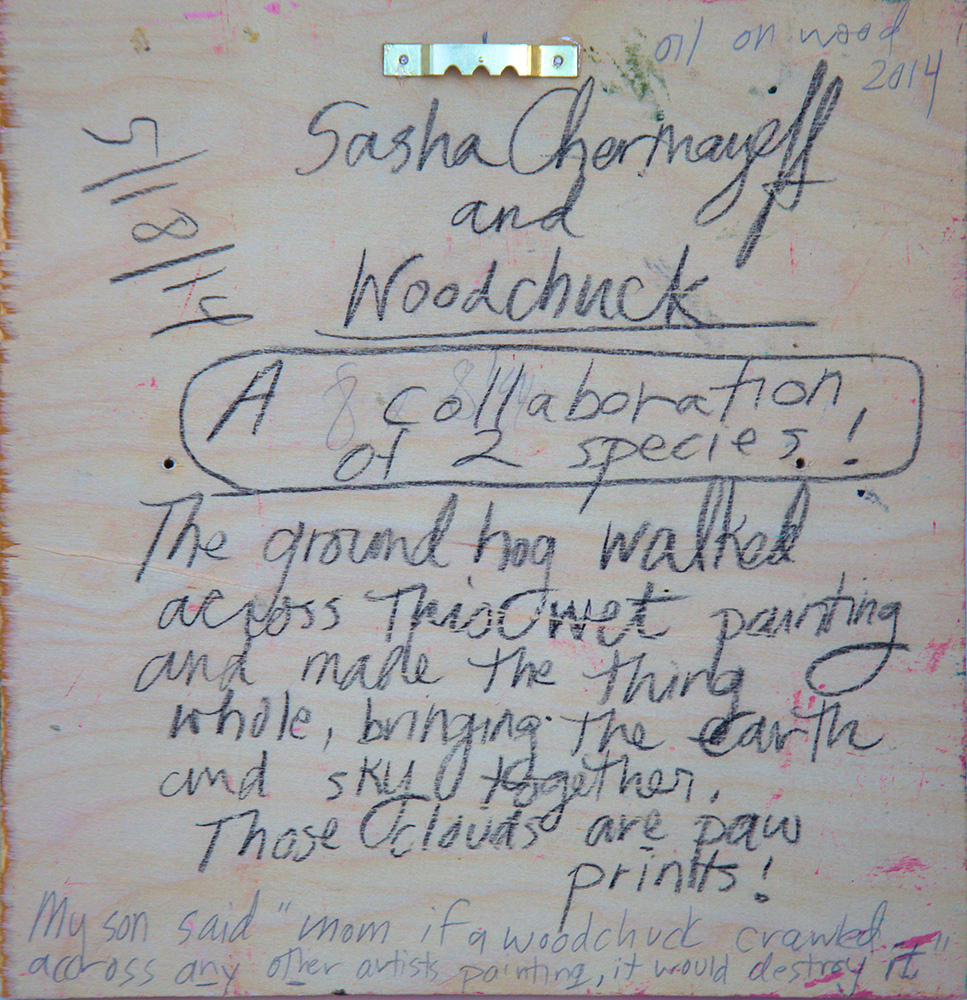 oil on wood
2014
5/18/14
Sasha Chermayeff
and
Woodchuck
A collaboration
of 2 species!
The ground hog walked
across this wet painting
and made the thing
whole, bringing the earth
and sky together.
Those clouds are paw
prints!
My son said "mom if a woodchuck crawled
accross any other artists painting, it would destroy it"